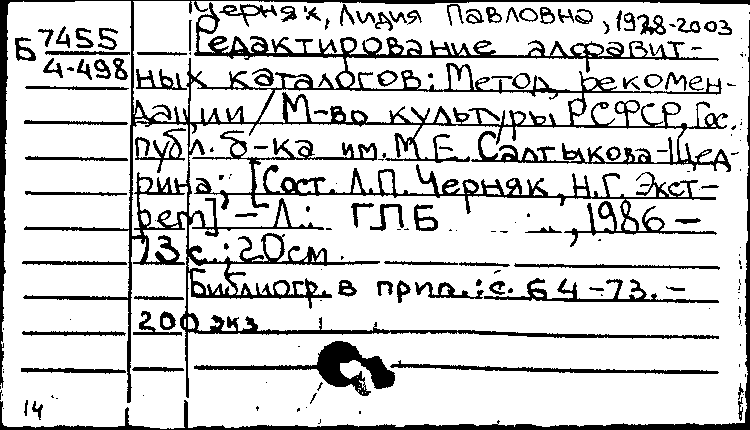 Черняк, Лидия Павловна, 1928-2003
Б 7455
4-498
Редактирование алфавит-
ных каталогов: Метод. рекомен-
дации / М-во культуры РСФСР, Гос.
публ. б-ка им. М.Е. Салтыкова-Щед-
рина; [Сост. Л.П. Черняк, Н.Г. Экст-
рем] - Л.: ГПБ, 1986 -
73 с.; 20 см.
Библиогр. в прил.: с. 64-73. -
200 экз
14